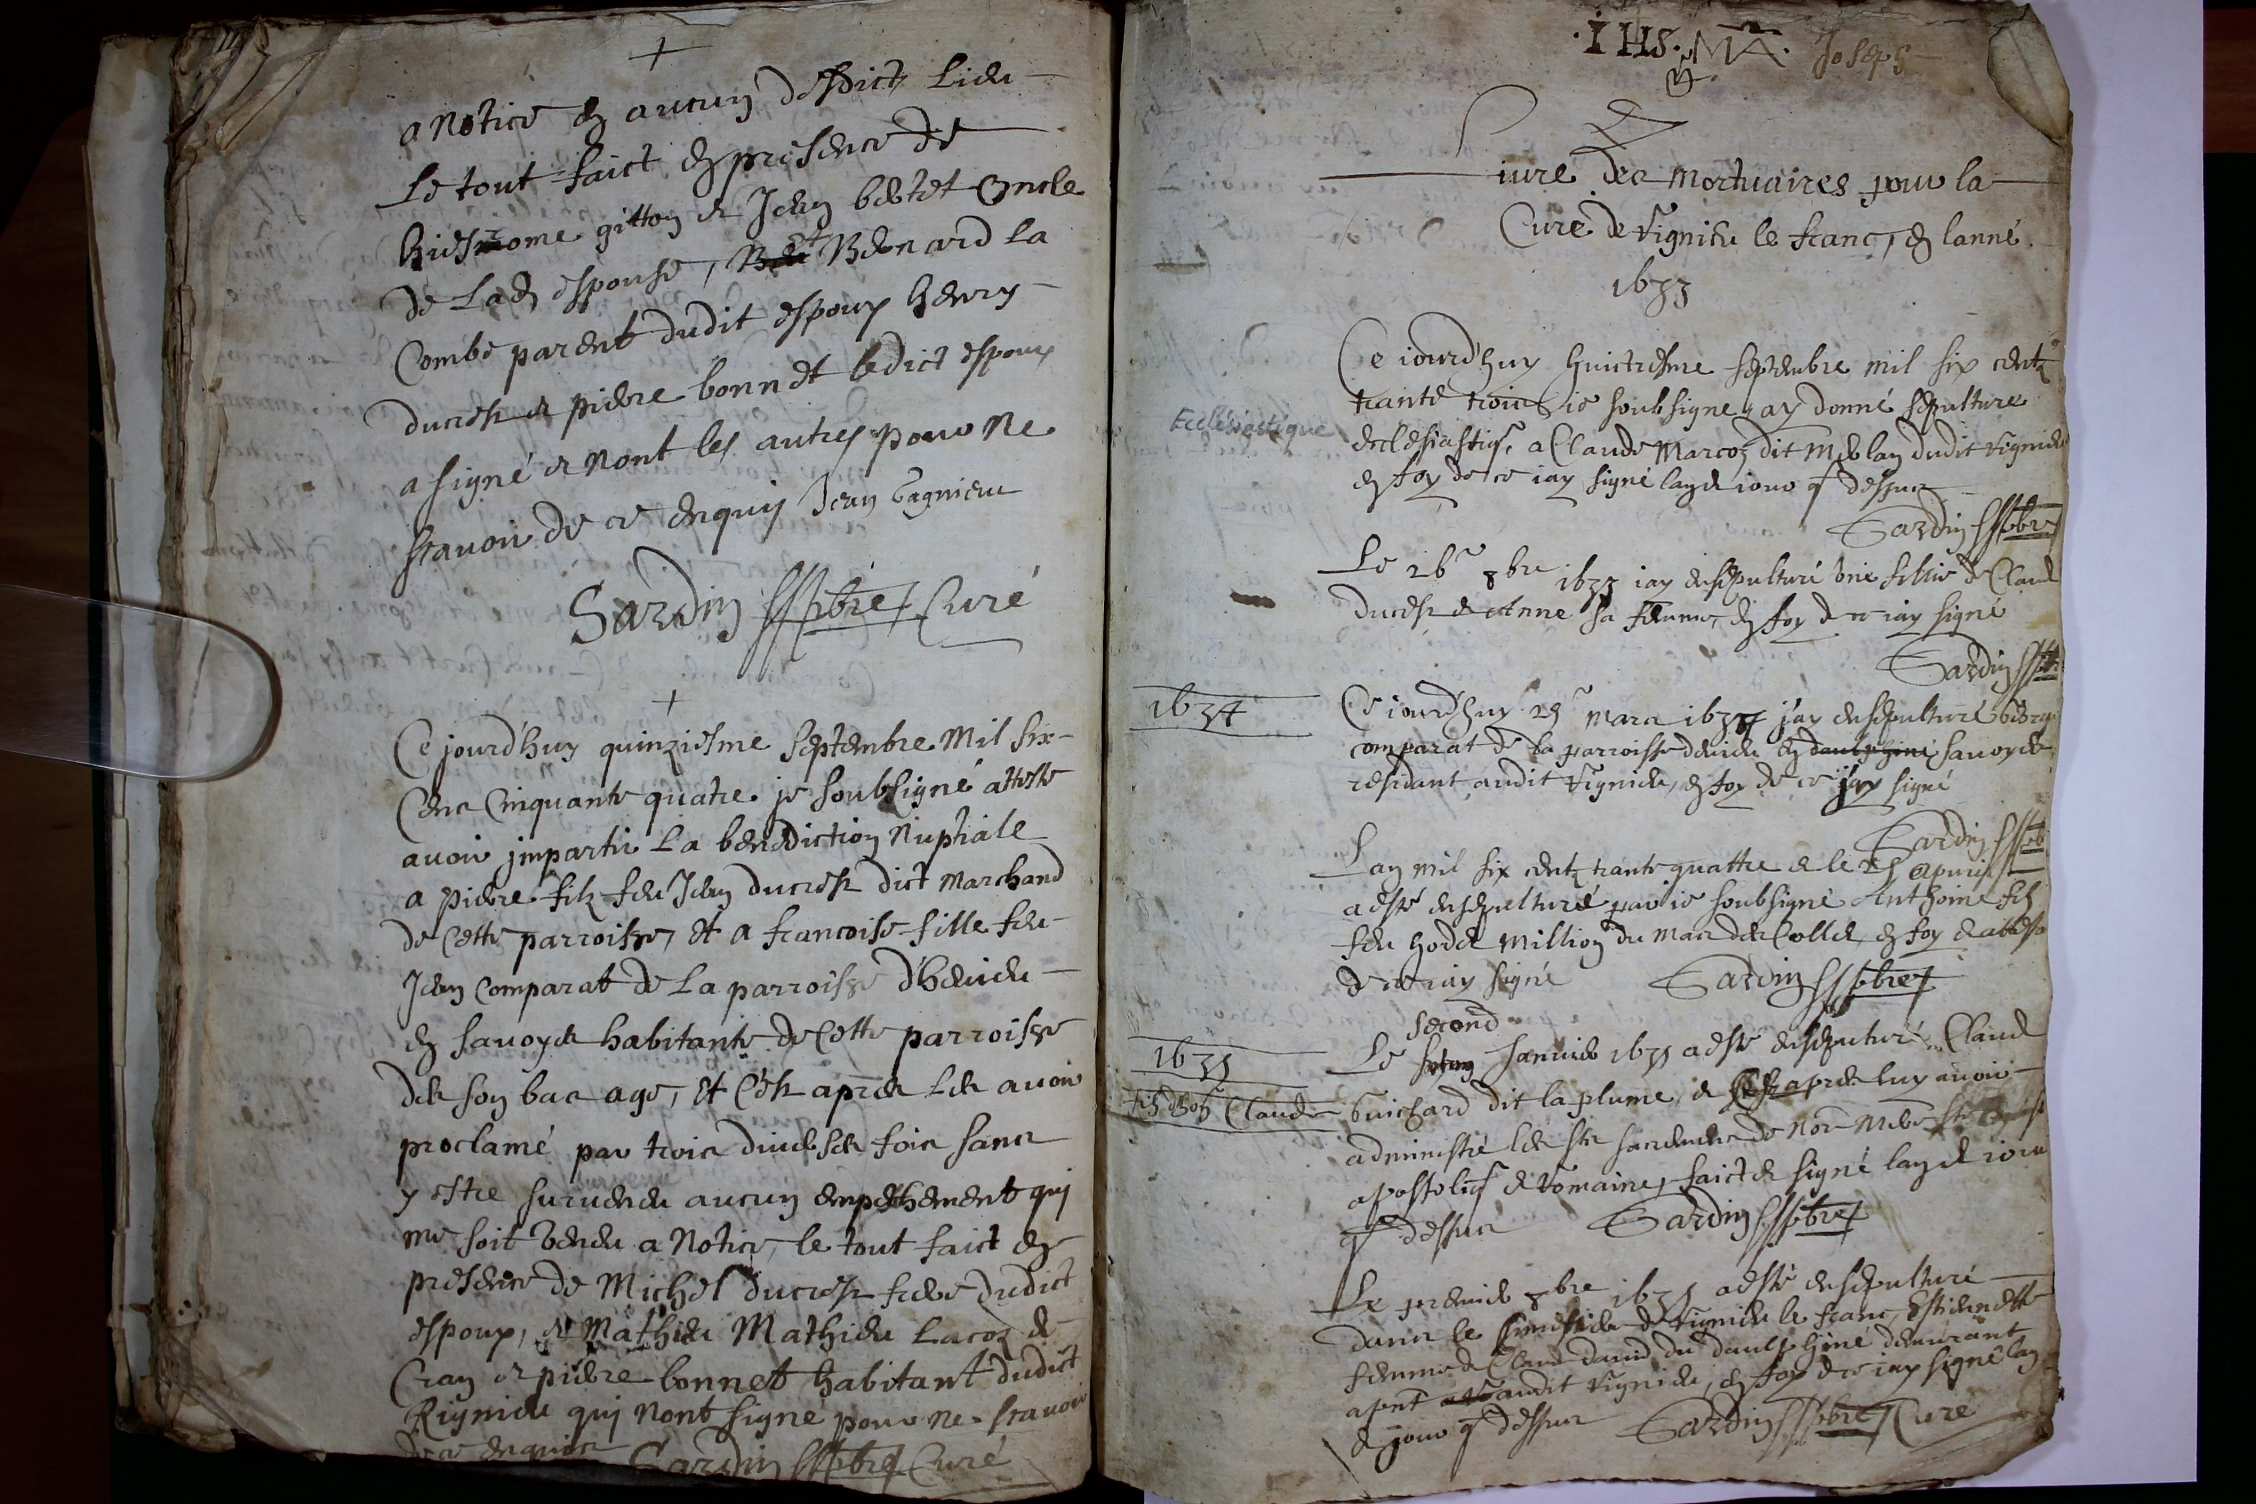 a notice en aucun desdict lieu
Le tout faict en presence de
hiesrome gitton et Jean bertet oncle
de Lad espouse, Benard La
Combe parent dudit espoux henry
ducrest et pierre bonnet ledict espoux
a signé et nont les autres pour ne
scavoir de ce enquis Jean Gagnieu
Sardin pbre Curé
Ce jourdhuy quinziesme septembre Mil six
Cens Cinquante quatre je soubsigné atteste
avoir jmpartir La benediction Nuptiale
a pierre filz feu Jean ducrest dict Marchand
de Cette parroisse, et a francoise fille feu
Jean Comparat de La parroisse dheuieu
en savoye habitante de Cette parroisse
des son bas age, et C'est apres Les avoir
proclamé par trois diuerses fois sans
y estre suruenu aucun empechement qui
me soit venu a Notice, le tout faict en
presence de Michel ducrest frere dudict
espoux, et Mathieu Mathieu Lacoz de
Cran et pierre bonnet habitant dudict
Rignieu qui nont signé pour ne scavoir
de ce enquis Sardin pbre Curé
IHS. MA. Joseph
Liure des Mortuaires pour la
Cure de Rignieu le franc, en lanné
1633
Ce iourdhuy huictiesme septembre mil six centz
trante trois ie soubsigne ay donné sepulture
Ecclésiastique
ecclesiastiq, a Claude Marcoz dit Meslan dudit Rignieu
en foy de ce iay signé lan et iour q dessus
Sardin pbre
Le 26 8bre 1633 iay ensepulturé vne fillie de Claud
ducrest et Anne sa femme, en foy de ce iay signé
Sardin pbre
1634
Ce iourdhuy 29 mars 1634 j'ay ensepulturé
comparat de la parroisse deuieu en daulphiné savoye
residant audit Rignieu, en foy de ce jay signé
Sardin pbre
Lan mil six centz trante quattre et le 25 apuril
a esté ensepulturé par ie soubsigné Anthoine filz
feu Million du mas des Colles, en foy et atteste
de ce iay signé Sardin pbre
second
1635
Le Januier 1635 a esté ensepulturé Claud
Claude Guichard dit la plume, et apres luy auoir
administré les sts sacrements de nore Mere ste Eglise
apostoliq et romaine, faict et signé lan et iour
q dessus Sardin pbre
Le premier 8bre 1635 a esté ensepulturé
dans le simetiere de Rignieu le franc, Estiennette
femme de Claud dauid du daulphiné demurant
apnt audit Rignieu, en foy de ce iay signé lan
et jour q dessus Sardin pbre Curé